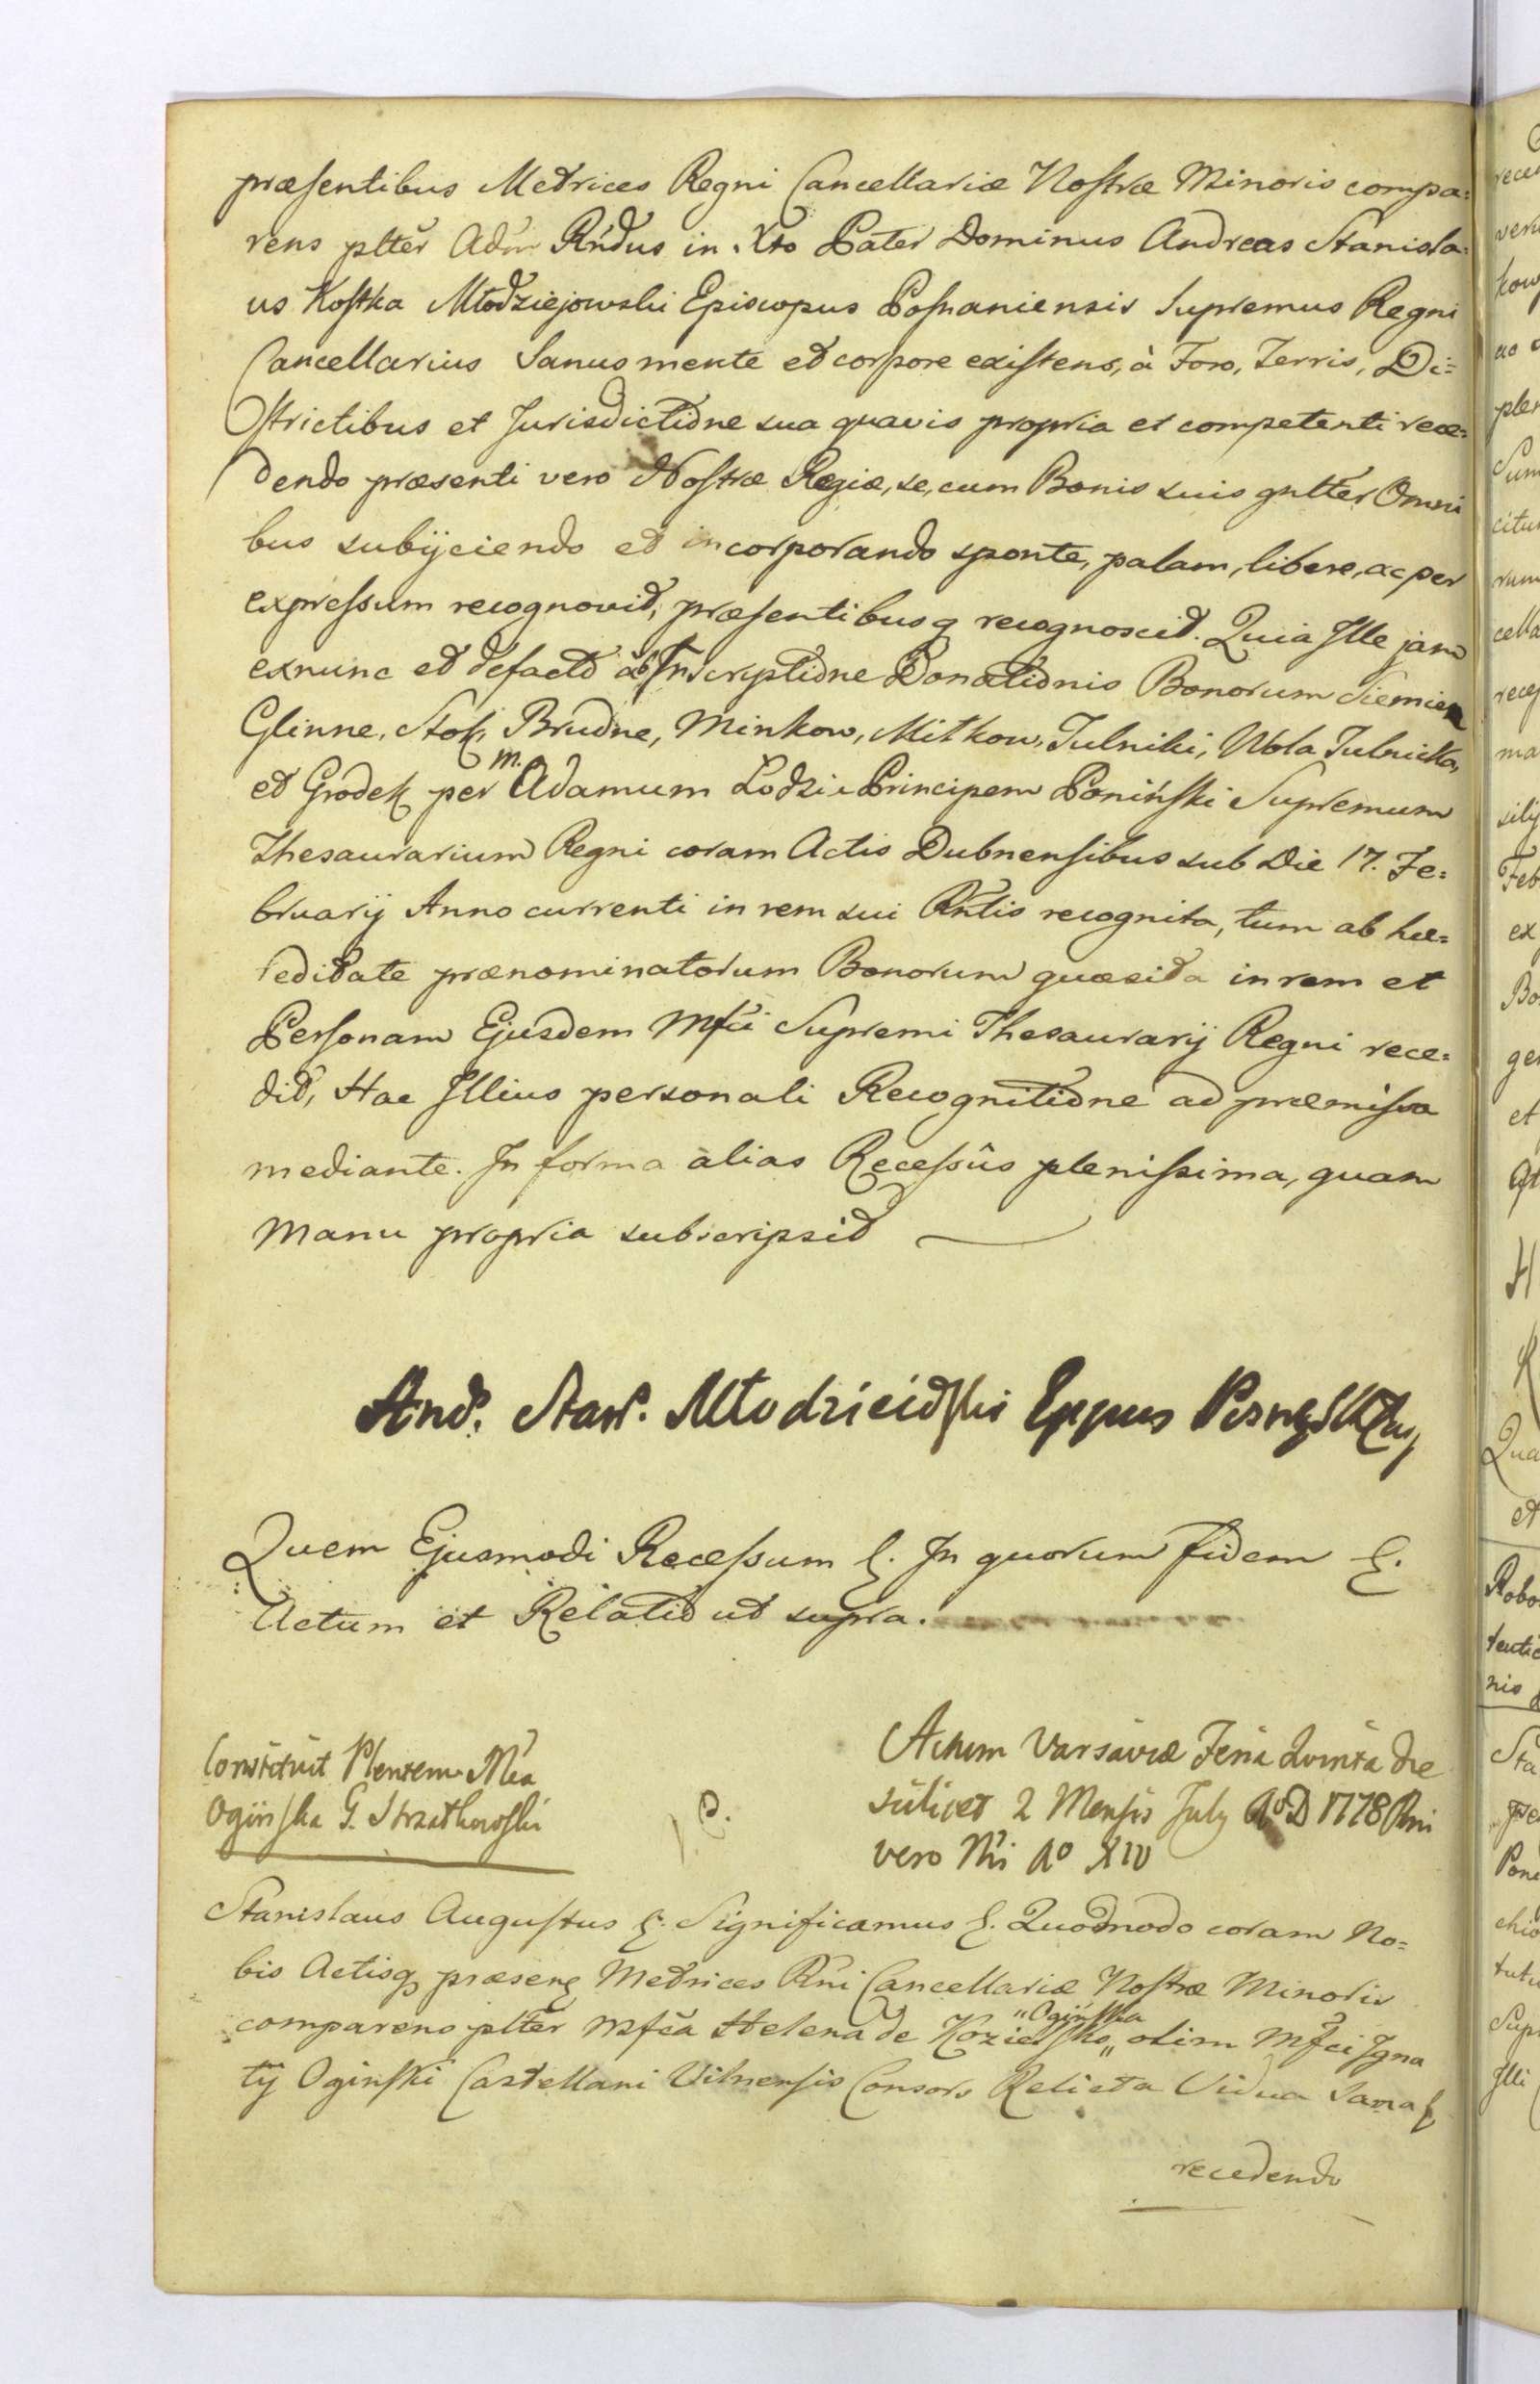 præsentibus Metrices Regni Cancellariæ Nostræ Minoris compa=
rens plter Adm Rndus in Xto Pater Dominus Andreas Stanisla=
us Kostka Młodziejowski Episcopus Posnaniensis Supremus Regni
Cancellarius Sanus mente et corpore existens, à Foro, Terris, Di=
strictibus et Jurisdictione sua quavis propria et competenti rece=
dendo præsenti vero Nostræ Regiæ, se, cum Bonis suis gnlter Omni
bus subijciendo et incorporando sponte, palam, libere, ac per
expressum recognovit, præsentibusq recognoscit. Quia Ille jam
exnunc et defacto ab Inscriptione Donationis Bonorum Siemien
Glinne, Stok, Brudne, Minkow, Mitkow, Tulniki, Wola Tulnicka,
et Grodek per M. Adamum Lodzia Principem Poniński Supremum
Thesaurarium Regni coram Actis Dubnensibus sub Die 17. Fe=
bruarij Anno currenti in rem sui Rntis recognita, tum ab hæ=
reditate prænominatorum Bonorum quæsita in rem et
Personam Ejusdem Mfci Supremi Thesaurarij Regni rece=
dit, Hac Illius personali Recognitione ad præmissa
mediante. In forma alias Recessûs plenissima, quam
Manu propria subscripsit
And. Stan. Młodzieiowski Eppus
Quem Ejusmodi Recessum &. In quorum fidem &.
Actum et Relatio ut supra.
Constituit Plentem Mca
Ogińska G. Strzatkowski
Actum Varsaviæ Feria Quinta die
scilicet 2 Mensis July Ao D 1778 Rni
vero Nri Ao XIV
Stanislaus Augustus &. Significamus &. Quodmodo coram No=
bis Actisq præsent Metrices Rni Cancellariæ Nostræ Minoris
comparens plter Mfca Helena de Kozielsko "Ogińska" olim Mfci Igna
tij Ogiński Castellani Vilnensis Consors Relicta Vidua Sana &
recedendo